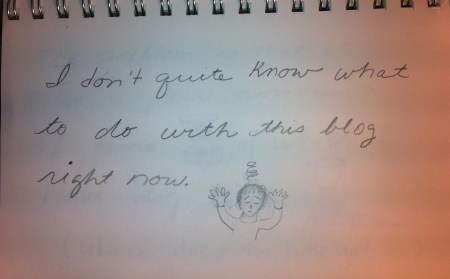 I don't quite know what
to do with this blog
right now.